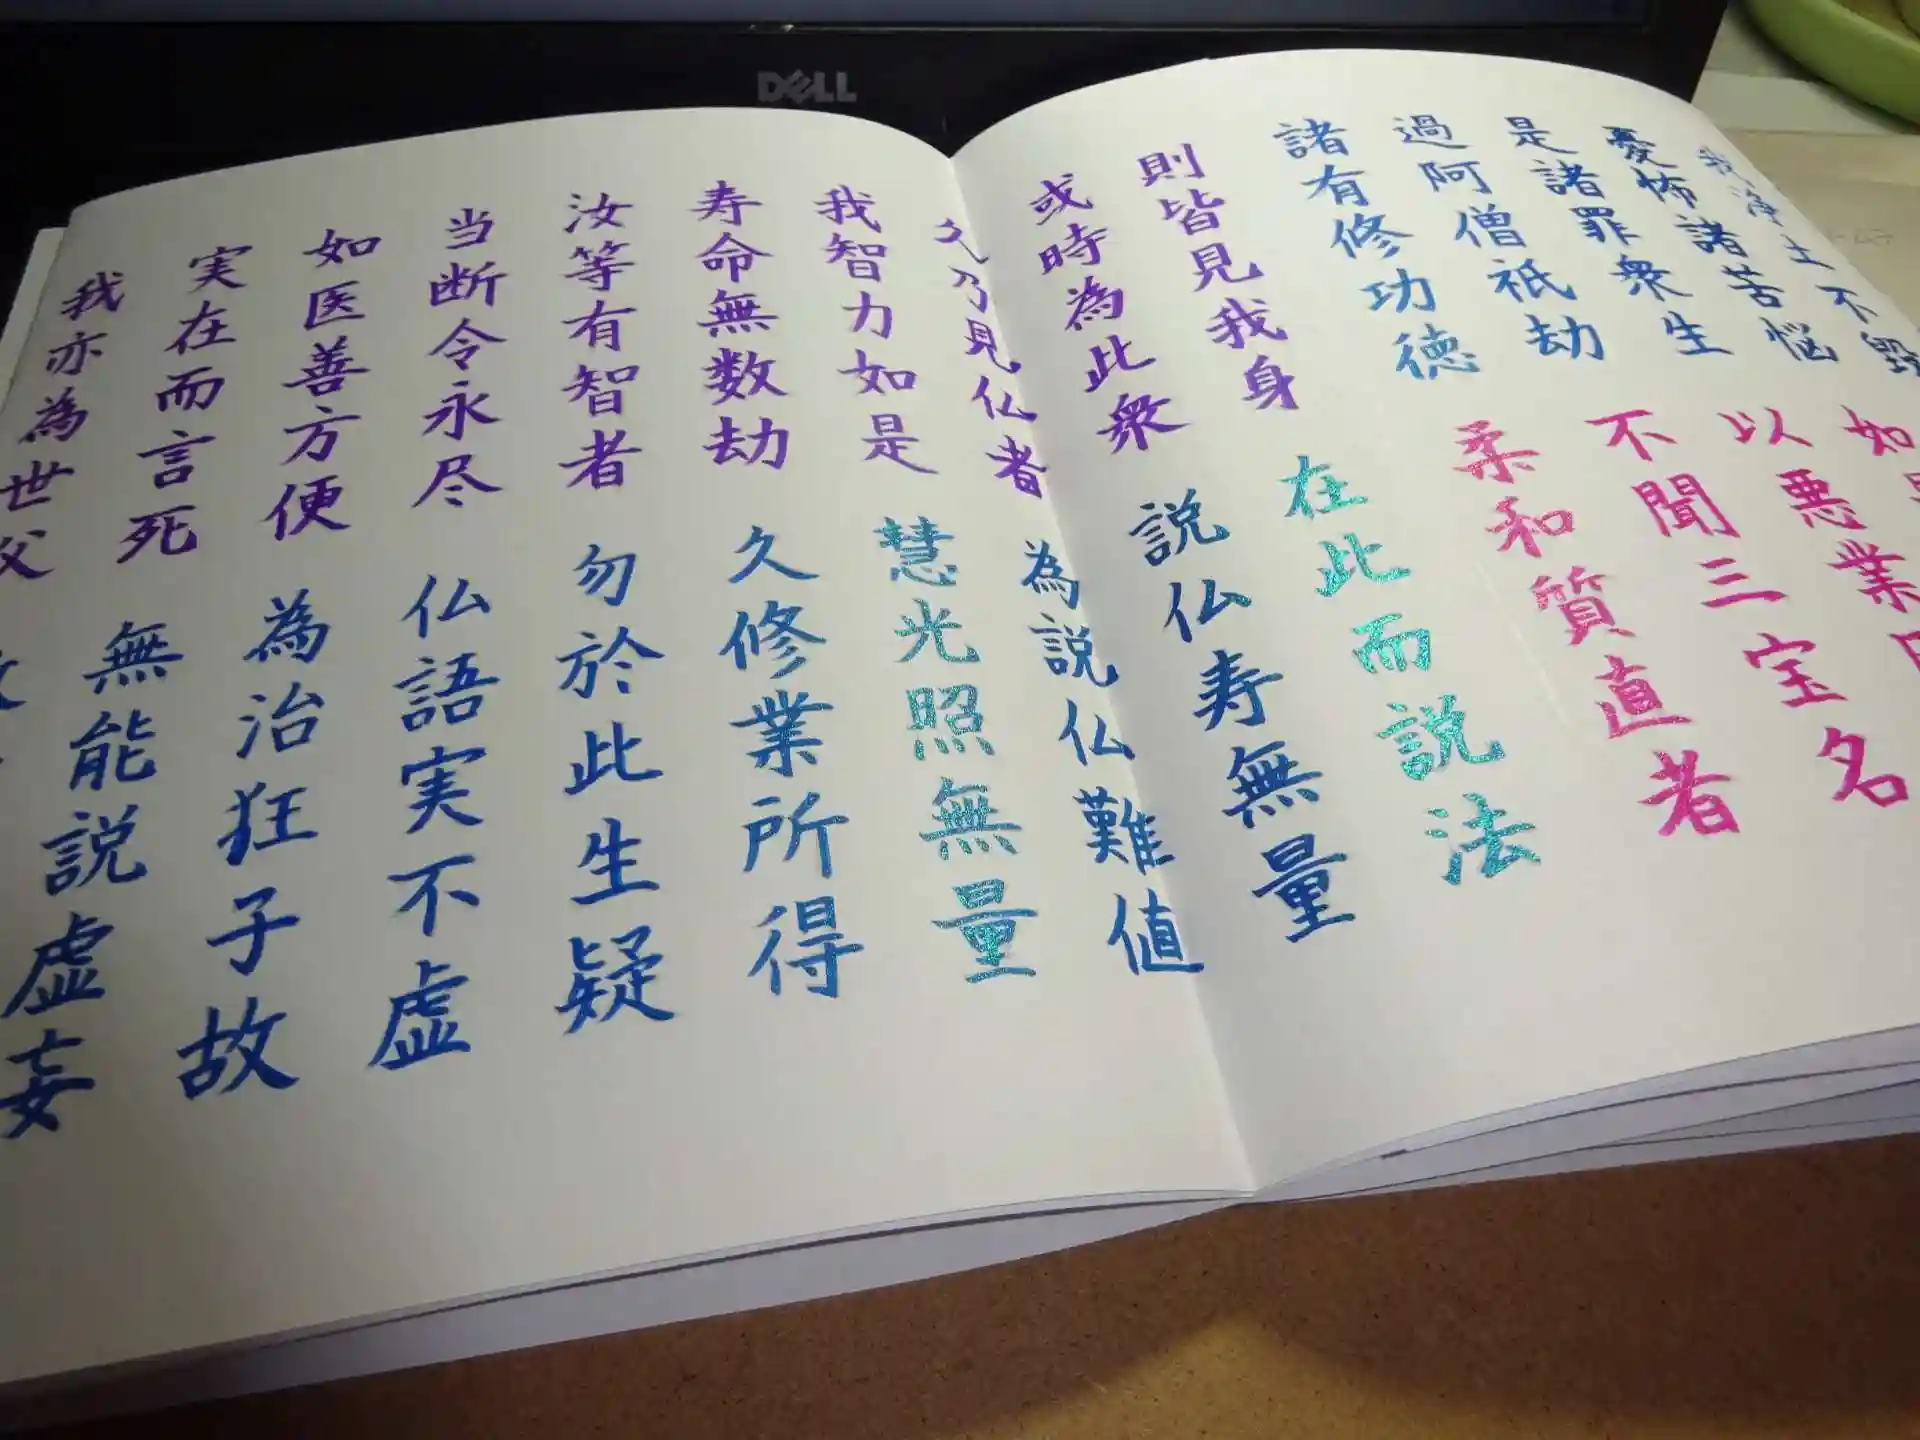 DELL
我浄土不毀
憂怖諸苦悩 如
是諸罪衆生 以悪業
過阿僧祇劫 不聞三宝名
諸有修功徳 柔和質直者
則皆見我身 在此而説法
或時為此衆 説仏寿無量
久乃見仏者 為説仏難値
我智力如是 慧光照無量
寿命無数劫 久修業所得
汝等有智者 勿於此生疑
当断令永尽 仏語実不虚
如医善方便 為治狂子故
実在而言死 無能説虚妄
我亦為世父